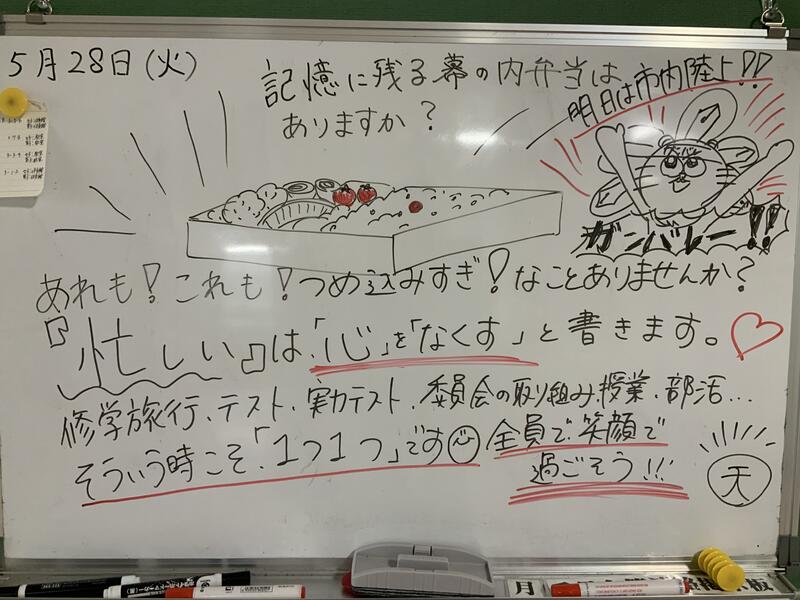 5月28日(火)
記憶に残る幕の内弁当は
ありますか?
明日は市内陸上!!
ガンバレー!!
あれも!これも!つめ込みすぎ!なことありませんか?
『忙しい』は、「心」を「なくす」と書きます。
修学旅行、テスト、実力テスト、委員会の取り組み、授業、部活...
そういう時こそ、「1つ1つ」です 全員で笑顔で
過ごそう!!!
天